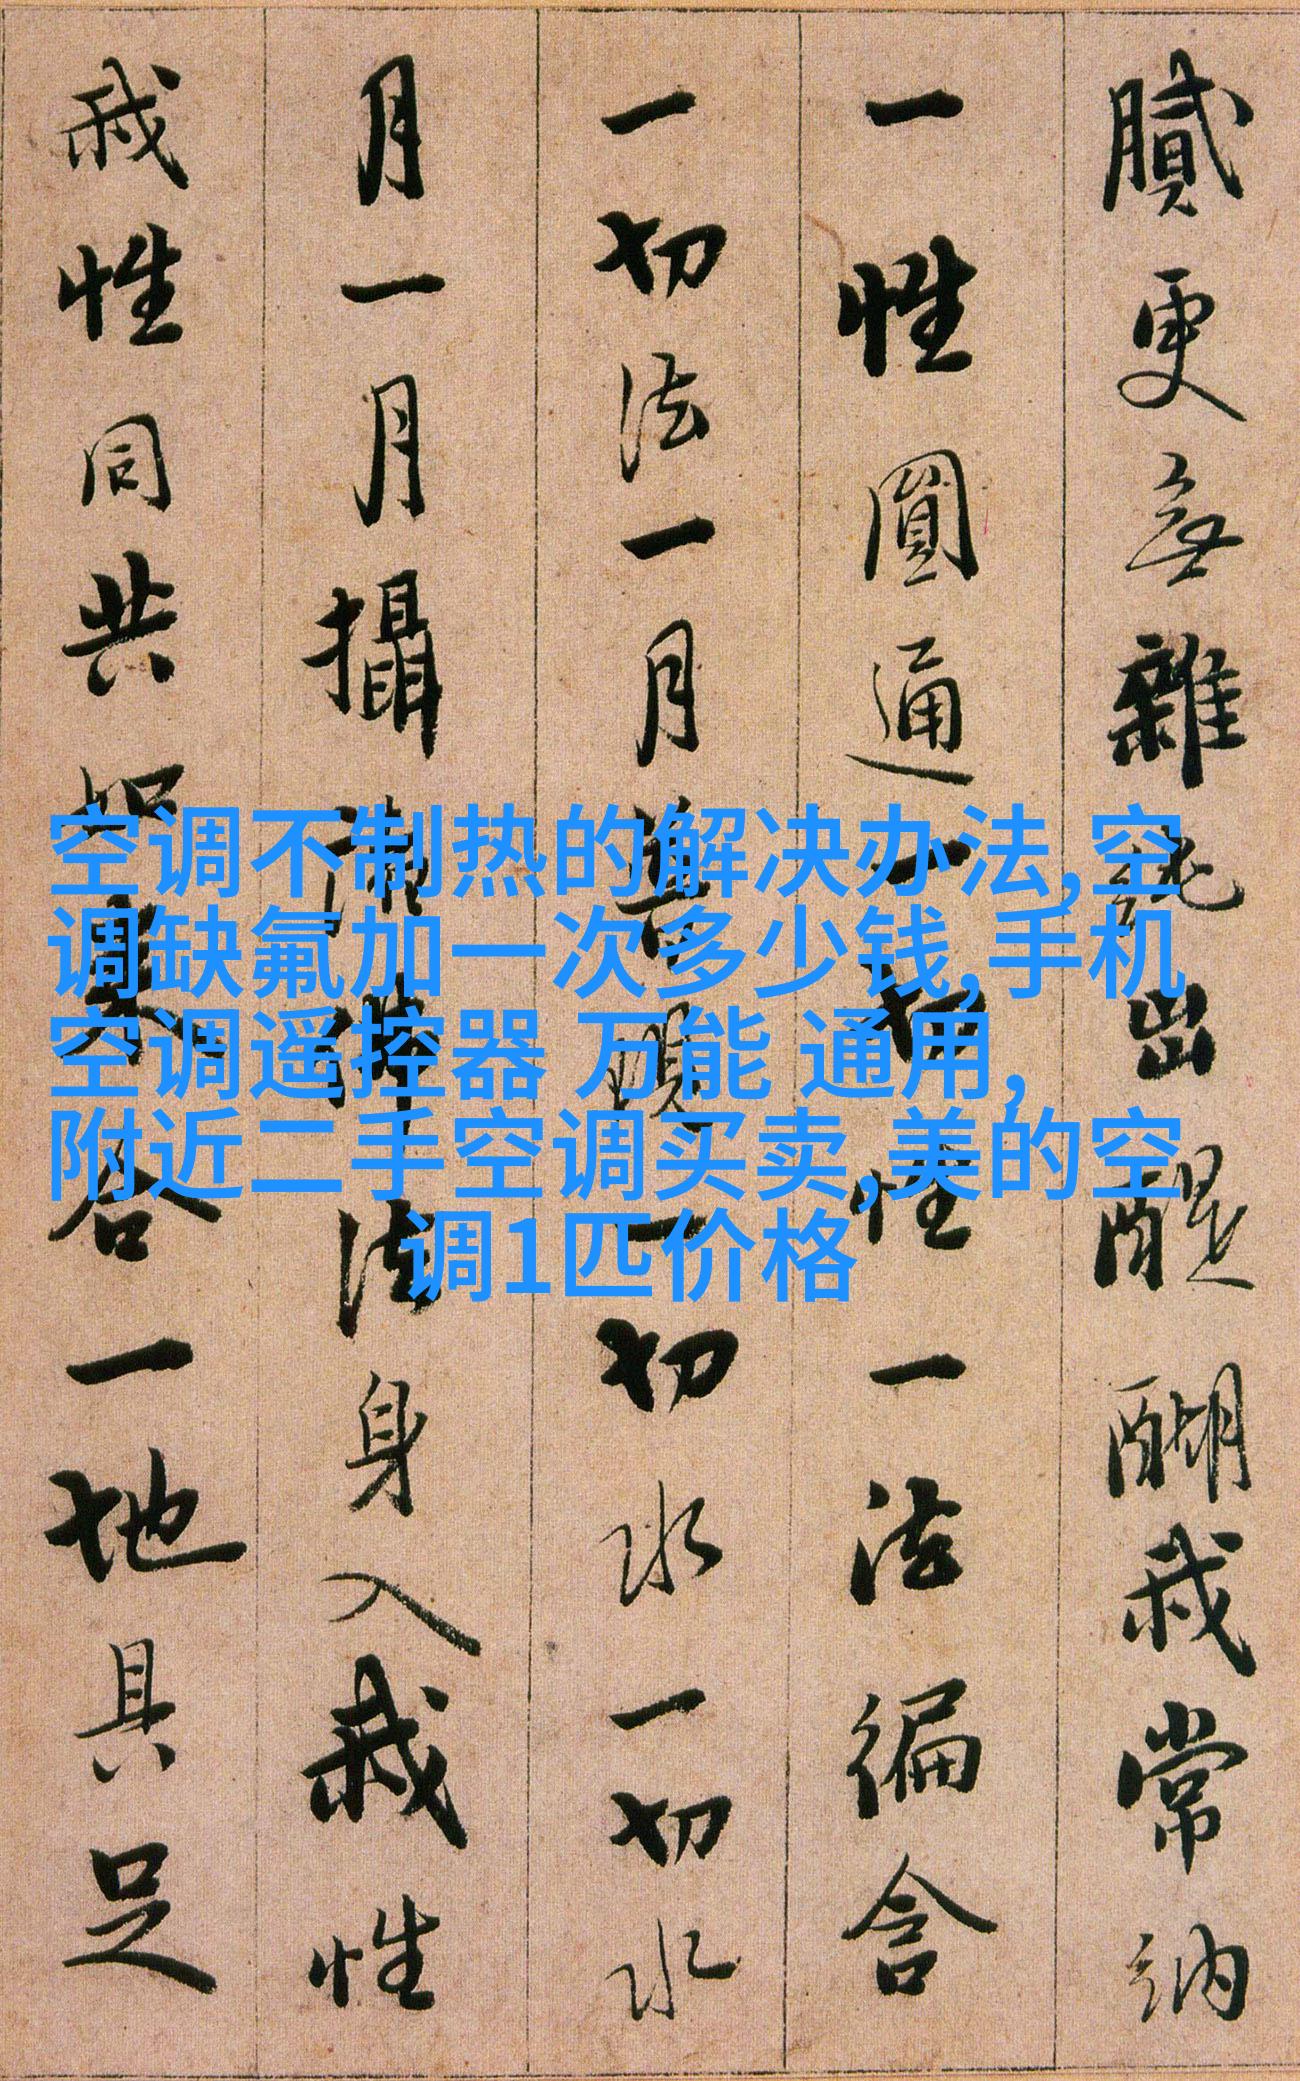 膩更無雜純出醍醐我常納
一性圓通一切性一法徧含
一切法一月普現一切水一切水
月一月攝諸佛法身入我性
我性同共如來合一地具足
空调不制热的解决办法,空
调缺氟加一次多少钱,手机
空调遥控器 万能 通用,
附近二手空调买卖,美的空
调1匹价格